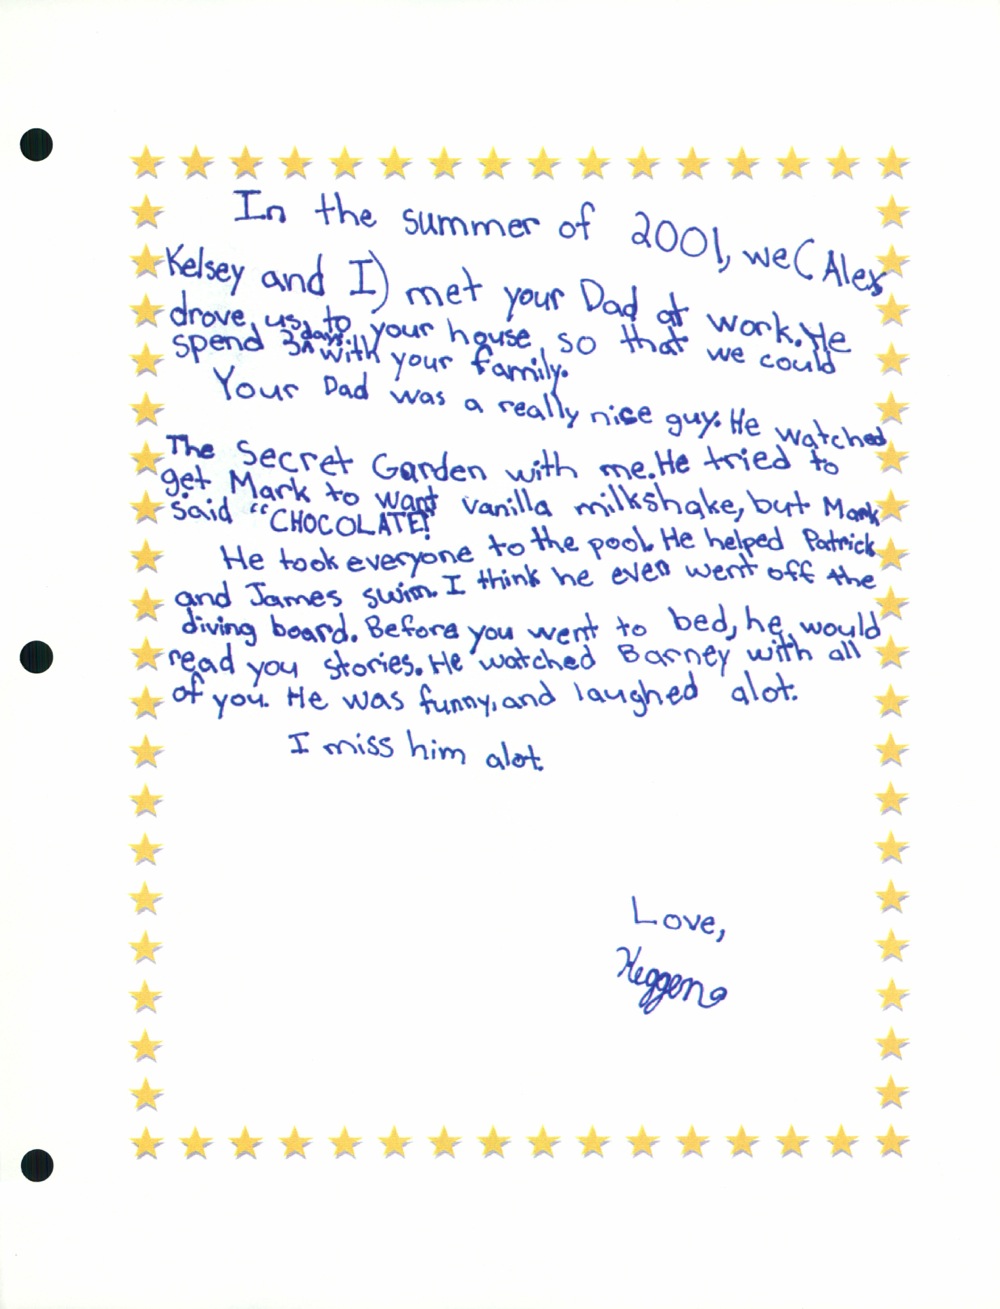 In the summer of 2001, we (Alex
Kelsey and I) met your Dad at work. He
drove us to your house so that we could
spend 3 days with your family.
Your Dad was a really nice guy. He watched
The Secret Garden with me. He tried to
get Mark to want vanilla milkshake, but Mark
said "CHOCOLATE!
He took everyone to the pool. He helped Patrick
and James swim. I think he even went off the
diving board. Before you went to bed, he would
read you stories. He watched Barney with all
of you. He was funny, and laughed alot.
I miss him alot.
Love,